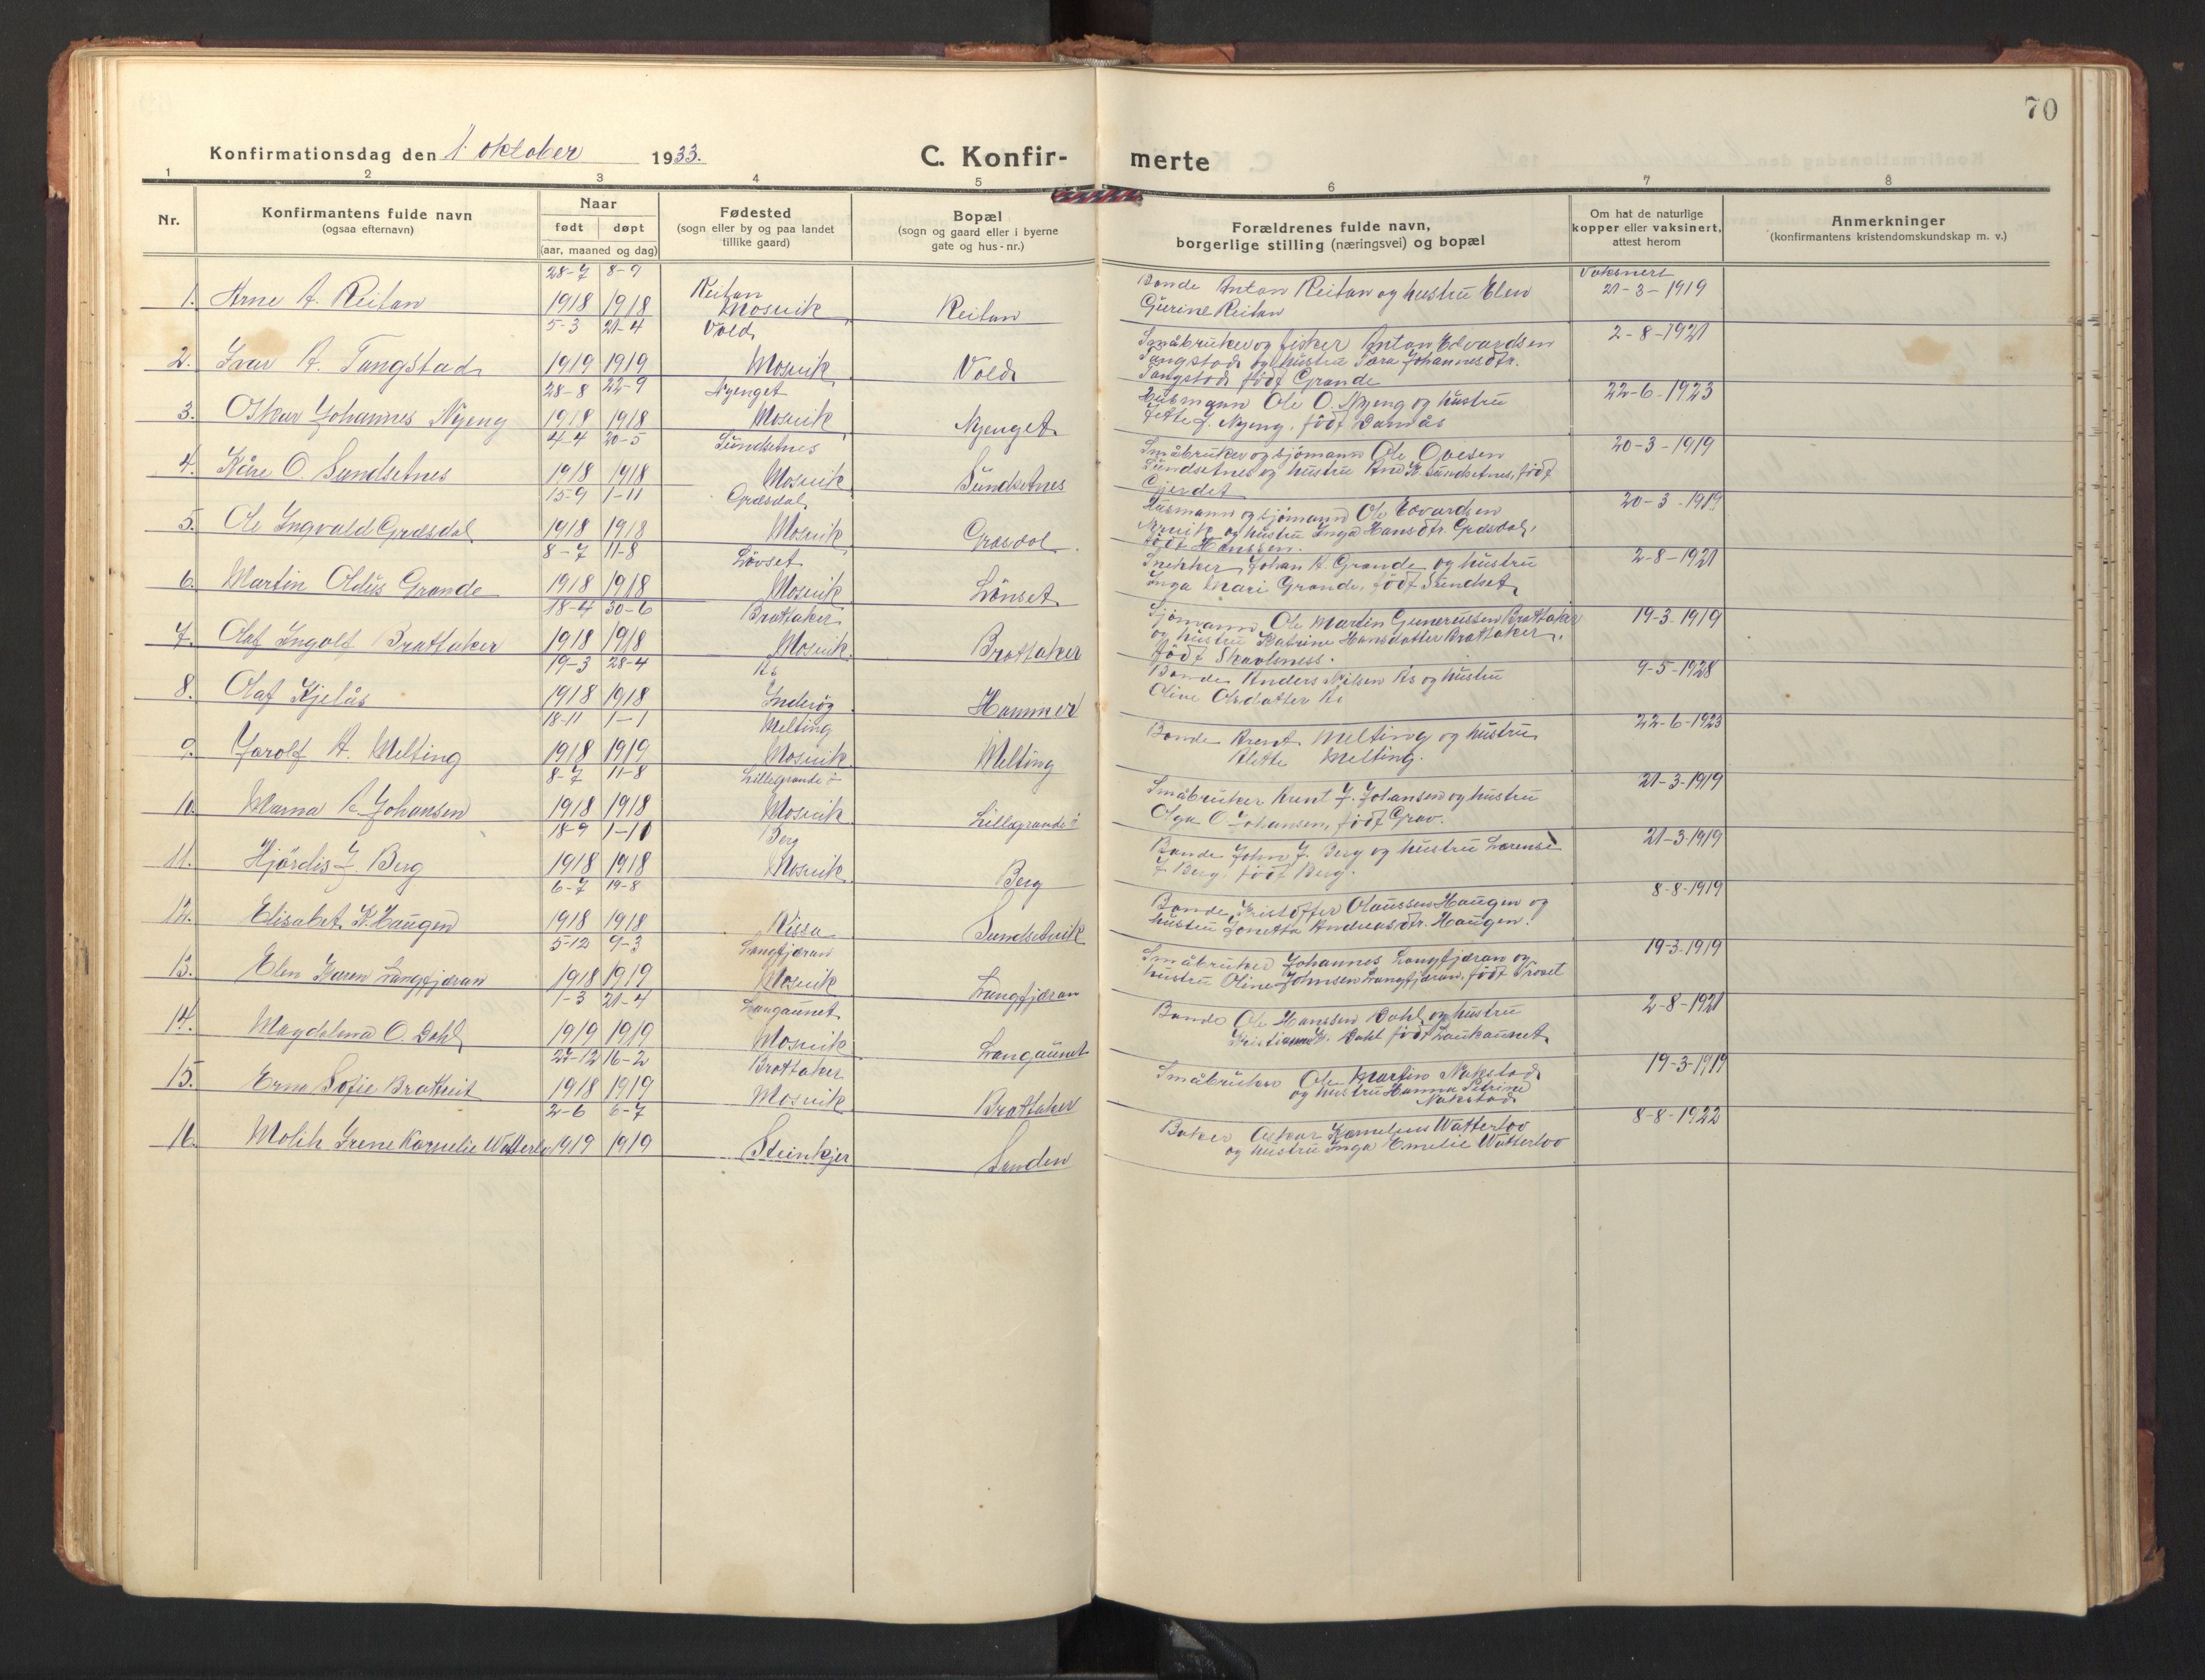 70
Konfirmationsdag den 1. oktober 1933.
C. Konfir-
merte
1 2 3 4 5 6 7 8
Nr.
Konfirmantens fulde navn
(ogsaa efternavn)
Naar
født døpt
(aar, maaned og dag)
Fødested
(sogn eller by og paa landet
tillike gaard)
Bopæl
(sogn og gaard eller i byerne
gate og hus-nr.)
Forældrenes fulde navn,
borgerlige stilling (næringsvei) og bopæl
Om hat de naturlige
kopper eller vaksinert,
attest herom
Anmerkninger
(konfirmantens kristendomskundskap m. v.)
28-7 8-9 Reitan Vaksinert
1. Arne A. Reitan 1918 1918 Mosvik Reitan Bonde Anton Reitan og hustru Elen 21-3-1919
Gurine Reitan
5-3 21-4 Vold Småbruker og fisker Anton Edvardsen 2-8-1921
2. Ivar A. Tangstad 1919 1919 Mosvik Vold Tangstad og hustru Sara Johannesdtr.
Tangstad født Grande
28-8 22-9 Nyenget Husmann Ole O. Nyeng og hustru 22-6-1923
3. Oskar Johannes Nyeng 1918 1918 Mosvik Nyenget Jette J. Nyeng, født Damås
4-4 20-5 Sundsetnes Småbruker og sjømann Ole Ovesen 20-3-1919
4. Kåre O. Sundsetnes 1918 1918 Mosvik Sundsetnes Sundsetnes og hustru K. Sundsetnes, født
Gjerdet
15-9 1-11 Græsdal Husmann og sjømann Ole Edvardsen 20-3-1919
5. Ole Ingvald Græsdal 1918 1918 Mosvik Græsdal og hustru Inga Hansdtr. Græsdal,
født Hanssen.
8-7 11-8 Lövset Snekker Johan A. Grande og hustru 2-8-1921
6. Martin Oldus Grande 1918 1918 Mosvik Lönset Inga Mari Grande, født Sundset
18-4 30-6 Brattaker Sjømann Ole Martin Gunerussen Brattaker 19-3-1919
7. Olaf Ingolf Brattaker 1918 1918 Mosvik Brattaker og hustru Katrine Hansdatter Brattaker,
født Skavlsness.
19-3 28-4 Ås Bonde Anders Nilsen Ås og hustru 9-5-1928
8. Olaf Kjelås 1918 1918 Inderøy Hammer Oline Olsdatter Ås
18-11 1-1 Melting Bonde Arent Melting og hustru 22-6-1923
9. Jarolf A. Melting 1918 1919 Mosvik Melting Alette Melting.
8-7 11-8 Lillegrande ö Småbruker Arent J. Johansen og hustru 21-3-1919
10. Marna A. Johansen 1918 1918 Mosvik Lillegrande ö Olga O. Johansen, født Grav.
18-9 1-11 Berg Bonde John J. Berg og hustru Lorense 21-3-1919
11. Hjördis J. Berg 1918 1918 Mosvik Berg J. Berg, født Berg.
6-7 19-8 Bonde Kristoffer Olaussen Haugen og 8-8-1919
12. Elisabet K. Haugen 1918 1918 Rissa Sundsetvik hustru Jonetta Andreasdtr. Haugen.
5-12 9-3 Langfjæran Småbruker Johannes Langfjæran og 19-3-1919
13. Elen Karen Langfjæran 1918 1919 Mosvik Langfjæran hustru Oline Johnsen Langfjæran, født Vroset
1-3 21-4 Langaunet Bonde Ole Hanssen Dahl og hustru 2-8-1921
14. Magdalena O. Dahl 1919 1919 Mosvik Langaunet Kristianna K. Dahl født Laukaunet
27-12 16-2 Brattaker Småbruker Ole Martin Nakstad 19-3-1919
15. Erna Sofie Brattreit 1918 1919 Mosvik Brattaker og hustru Hanna Petrine
Nakstad
2-6 6-7 Baker Oskar Kornelius Watterloo 8-8-1922
16. Molih Irene Kornelie Watterlo 1919 1919 Steinkjer Sanden og hustru Inga Emelie Watterloo